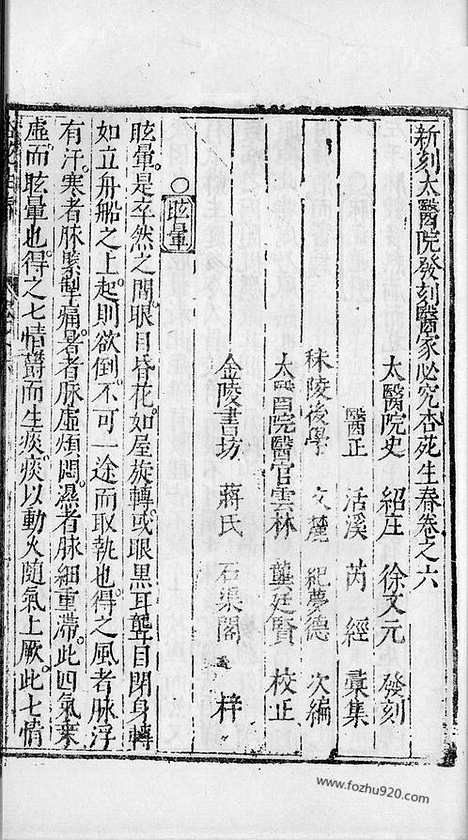 新刻太醫院發刻醫家必究杏苑生春卷之六
太醫院史 紹庄 徐文元 發刻
醫正 活溪 芮 經 彚集
秣陵後學 文麓 紀夢德 次編
太醫院醫官雲林 龔廷賢 校正
金陵書坊 蔣氏 石渠閣 梓
○眩暈
眩暈是卒然之間眼目昏花如屋旋轉或眼黑耳聾目閉身轉
如立舟船之上起則欲倒不可一途而取執也得之風者脉浮
有汗寒者脉緊掣痛暑者脉虛煩悶濕者脉細重滯此四氣乘
虛而眩暈也得之七情欝而生痰痰以動火隨氣上厥此七情
www.fozhu920.com